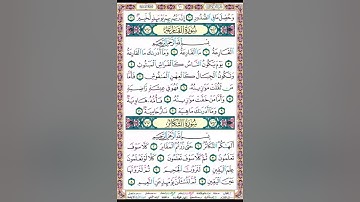 وَحُصِّلَ مَا فِي الصُّدُورِ إِنَّ رَبَّهُم بِهِمْ يَوْمَئِذٍ لَّخَبِيرٌ
سُورَةُ القَارِعَةِ
بِسْمِ اللَّهِ الرَّحْمَٰنِ الرَّحِيمِ
الْقَارِعَةُ مَا الْقَارِعَةُ وَمَا أَدْرَاكَ مَا الْقَارِعَةُ
يَوْمَ يَكُونُ النَّاسُ كَالْفَرَاشِ الْمَبْثُوثِ
وَتَكُونُ الْجِبَالُ كَالْعِهْنِ الْمَنفُوشِ فَأَمَّا مَن
ثَقُلَتْ مَوَازِينُهُ فَهُوَ فِي عِيشَةٍ رَّاضِيَةٍ
وَأَمَّا مَنْ خَفَّتْ مَوَازِينُهُ فَأُمُّهُ هَاوِيَةٌ
وَمَا أَدْرَاكَ مَا هِيَهْ نَارٌ حَامِيَةٌ
سُورَةُ التَّكَاثُرِ
بِسْمِ اللَّهِ الرَّحْمَٰنِ الرَّحِيمِ
أَلْهَاكُمُ التَّكَاثُرُ حَتَّىٰ زُرْتُمُ الْمَقَابِرَ كَلَّا سَوْفَ
تَعْلَمُونَ ثُمَّ كَلَّا سَوْفَ تَعْلَمُونَ كَلَّا لَوْ تَعْلَمُونَ
عِلْمَ الْيَقِينِ لَتَرَوُنَّ الْجَحِيمَ ثُمَّ لَتَرَوُنَّهَا
عَيْنَ الْيَقِينِ ثُمَّ لَتُسْأَلُنَّ يَوْمَئِذٍ عَنِ النَّعِيمِ